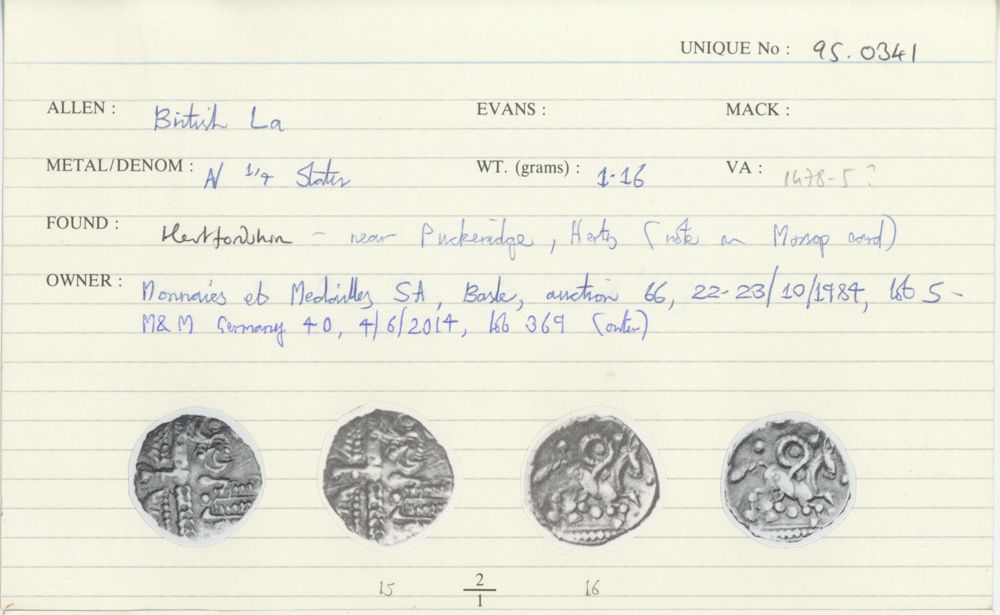 UNIQUE No : 95.0341
ALLEN : British La EVANS : MACK :
METAL/DENOM : A/ 1/4 Stater WT. (grams) : 1.16 VA : 1478-5?
FOUND : Hertfordshire - near Puckeridge, Herts (note on Mossop card)
OWNER : Monnaies et Medailles SA, Basle, auction 66, 22-23/10/1984, lot 5-
M&M Germany 40, 4/6/2014, lot 369 (outer)
15 2/1 16